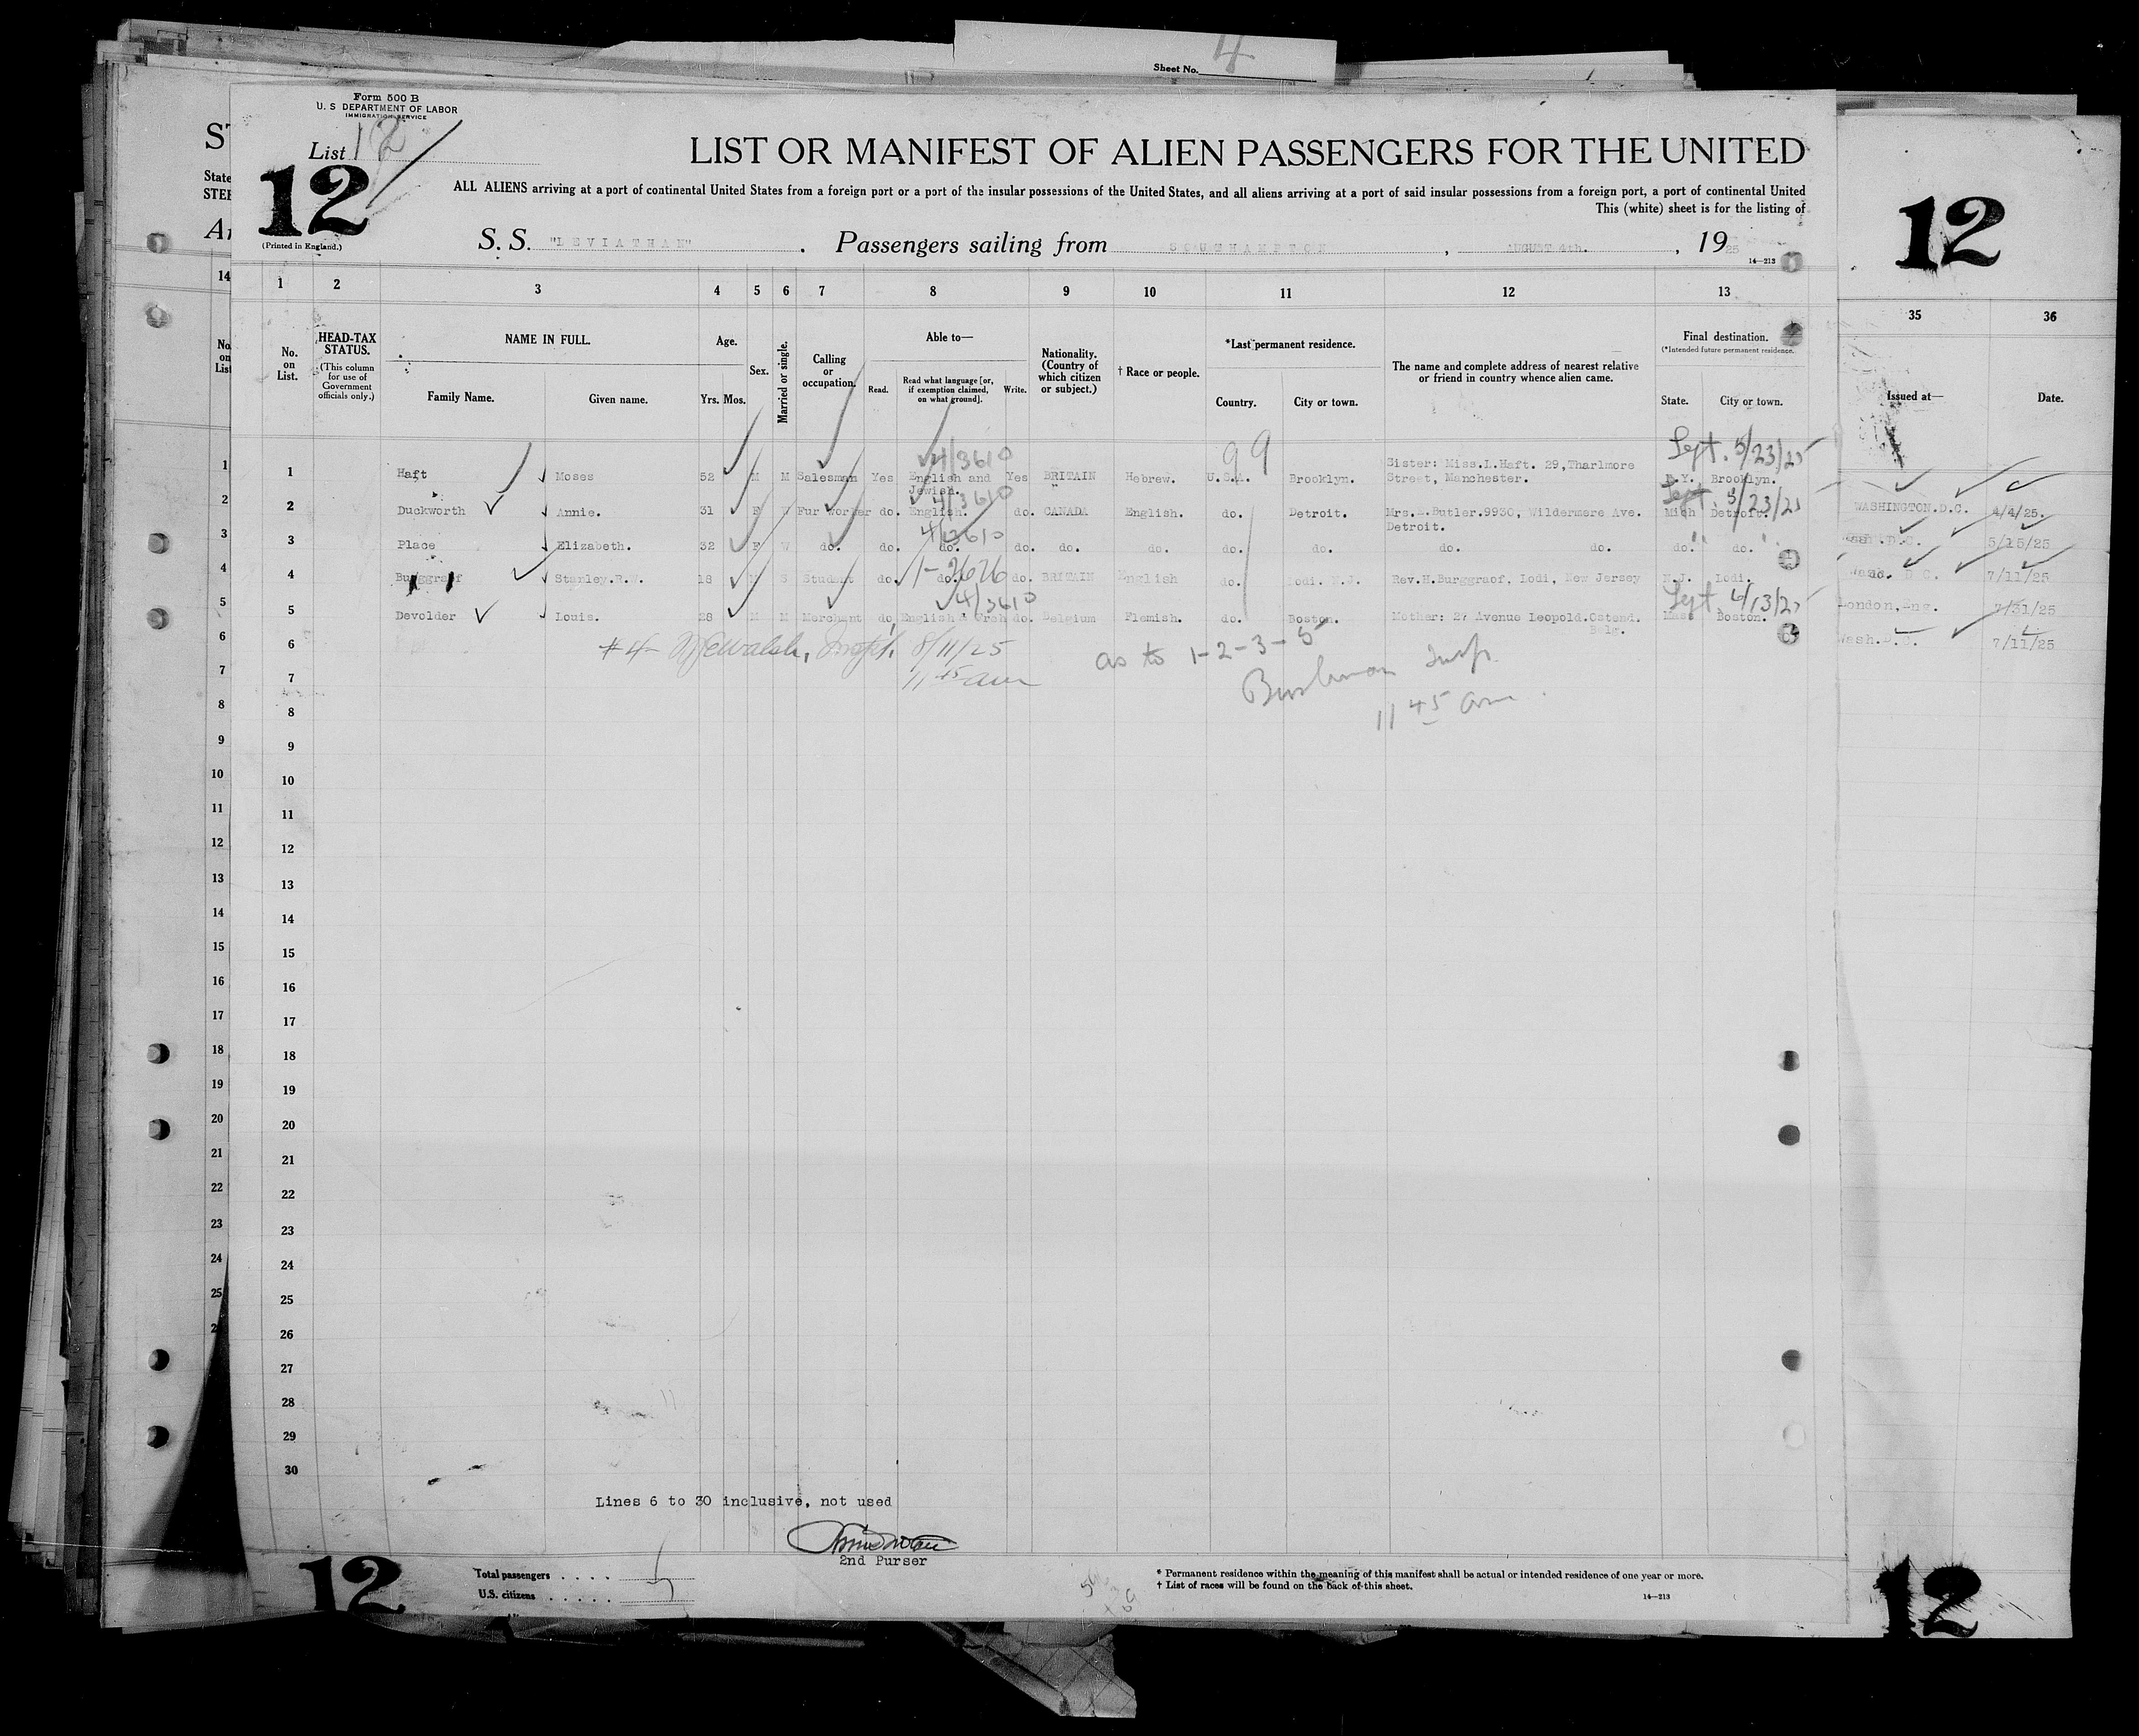 Sheet No. 4
Form 500 B
U. S DEPARTMENT OF LABOR
IMMIGRATION SERVICE
List 12
12
(Printed in England.)
LIST OR MANIFEST OF ALIEN PASSENGERS FOR THE UNITED
ALL ALIENS arriving at a port of continental United States from a foreign port or a port of the insular possessions of the United States, and all aliens arriving at a port of said insular possessions from a foreign port, a port of continental United
This (white) sheet is for the listing of
S. S. "LEVIATHAN". Passengers sailing from SOUTHAMPTON, AUGUST 4th., 1925
14—213
12
1 2 3 4 5 6 7 8 9 10 11 12 13
35 36
No. on List.
HEAD-TAX STATUS.
(This column for use of Government officials only.)
NAME IN FULL.
Family Name. Given name.
Age.
Yrs. Mos.
Sex.
Married or single.
Calling or occupation.
Able to—
Read. Read what language [or, if exemption claimed, on what ground]. Write.
Nationality. (Country of which citizen or subject.)
† Race or people.
*Last permanent residence.
Country. City or town.
The name and complete address of nearest relative or friend in country whence alien came.
Final destination.
(*Intended future permanent residence.
State. City or town.
Issued at— Date.
4/3610 99 Sept. 5/23/25
1 Haft Moses 52 M M Salesman Yes English and Jewish. Yes BRITAIN Hebrew. U.S.A. Brooklyn. Sister: Miss.L.Haft. 29,Tharlmore Street, Manchester. N.Y. Brooklyn.
4/3610 Sept 5/23/25
2 Duckworth Annie. 31 F Fur Worker do. English. do. CANADA English. do. Detroit. Mrs. Butler.9930, Wildermere Ave. Detroit. Mich Detroit. WASHINGTON.D.C. 4/4/25.
4/3610
3 Place Elizabeth. 32 F W do. do. do. do. do. do. do. do. do. do. do. do. 5/15/25
1-2626
4 Burggraaf Stanley.R.W. 18 M S Student do. do. do. BRITAIN English do. Lodi. N.J. Rev.H.Burggraof, Lodi, New Jersey N.J. Lodi. 7/11/25
4/3610 Sept 6/13/25
5 Devolder Louis. 28 M M Merchant do. English do. Belgium Flemish. do. Boston. Mother: 27 Avenue Leopold.Ostend. Belg. Mass Boston. London,Eng. 7/31/25
Wash.D.C. 7/11/25
6 #4- Walsh, Inspt. 8/11/25 as to 1-2-3-5
7 11 45 am Insp.
11 45 am
8
9
10
11
12
13
14
15
16
17
18
19
20
21
22
23
24
25
26
27
28
29
30
Lines 6 to 30 inclusive, not used
2nd Purser
12
Total passengers . . . . 5
U.S. citizens . . . . .
* Permanent residence within the meaning of this manifest shall be actual or intended residence of one year or more.
† List of races will be found on the back of this sheet.
14—213
12